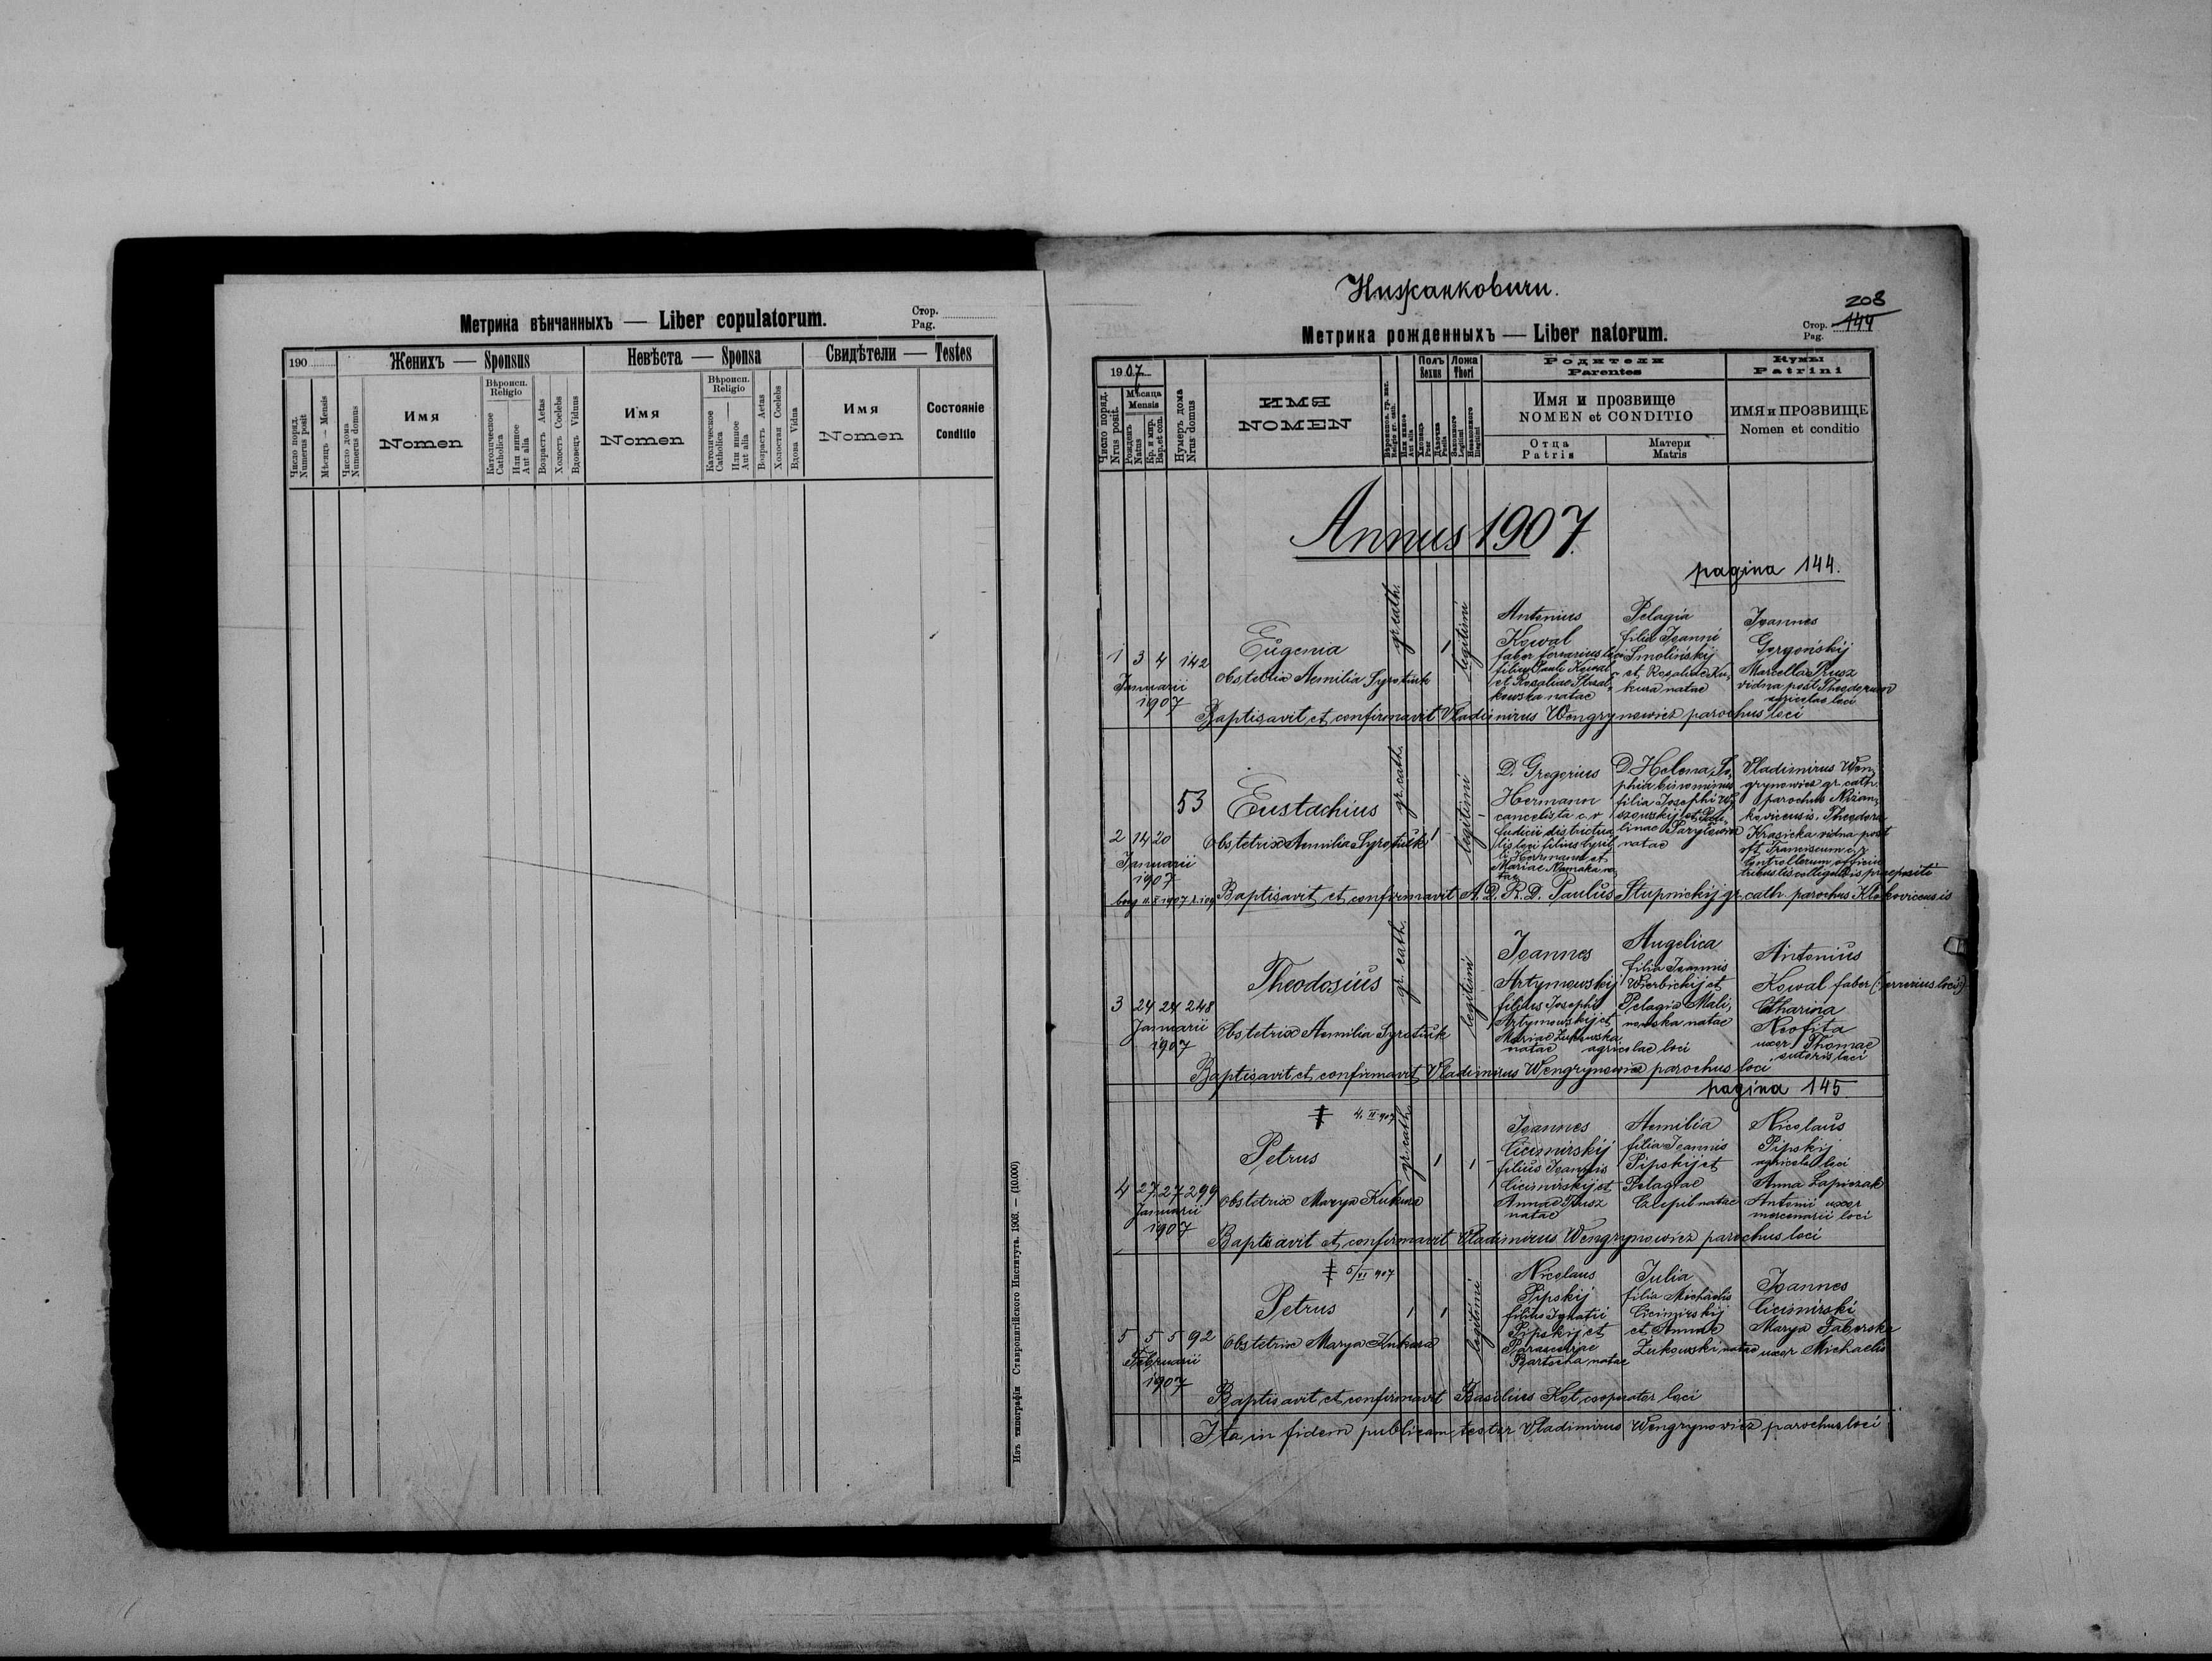 Метрика вѣнчанныхъ — Liber copulatorum.
Стор.
Pag.
190
Женихъ — Sponsus
Невѣста — Sponsa
Свидѣтели — Testes
Число поряд.
Numerus posit
Мѣсяцъ — Mensis
Число дома
Numerus domus
Имя
Nomen
Вѣроисп.
Religio
Католическое
Catholica
Или инное
Aut alia
Возрастъ Aetas
Холостъ Coelebs
Вдовецъ Viduus
Имя
Nomen
Вѣроисп.
Religio
Католическое
Catholica
Или инное
Aut alia
Возрастъ Aetas
Холостая Coelebs
Вдова Vidua
Имя
Nomen
Состояніе
Conditio
Изъ типографіи Ставропигійского Института. 1903. — (10.000)
Нижанковичи.
208
Метрика рожденныхъ — Liber natorum.
Стор.
Pag.
144
1907
Число поряд.
Nrus posit.
Мѣсяца
Mensis
Рожденъ
Natus
Кр. и мир.
Bap. et con.
Нумеръ дома
Nrus domus
ИМЯ
NOMEN
Вѣроиспов. гр. кат.
Religio gr. cath.
Или инное
Aut alia
Полъ
Sexus
Хлопецъ
Puer
Дѣвочка
Puella
Ложа
Thori
Законного
Legitimi
Незаконного
Illegitimi
Родители
Parentes
Имя и прозвище
NOMEN et CONDITIO
Отца
Patris
Матери
Matris
Кумы
Patrini
ИМЯ и ПРОЗВИЩЕ
Nomen et conditio
Annus 1907.
pagina 144.
1 3 4 142
Januarii
1907
Eugenia
obstetrix Aemilia Syrotiuk
gr. cath.
1
legitimi
Antonius
Kowal
faber ferrarius loci
filius Pauli Kowal
et Rosaliae
kowska natae
Pelagia
filia Joanni
Smolińskij
et Rosaliae Ku-
kura natae
Joannes
Gorgońskij
Marcella Prusz
vidua post Theodorum
agricolae loci
Baptisavit et confirmavit Vladimirus Wengrynowicz parochus loci
2 14 20 53
Januarii
1907
Eustachius
Obstetrix Aemilia Syrotiuk
gr. cath.
1
legitimi
D. Gregorius
Hermann
cancelista c. r.
Judicii districtua-
lis loci filius Cyril-
li Hermann et
Mariae na-
tae
D. Helena, So-
phia binominis
filia Josephi
natae
Vladimirus Wen-
grynowicz gr. cath.
parochus Niżan-
koviceusis. Theodora
Krasicka vidua post
Franciscum c. r.
Controllorum officii
praepositi
Baptisavit et confirmavit A. D. R. D. Paulus Stupnickij gr. cath. parochus
3 24 24 248
Januarii
1907
Theodosius
Obstetrix Aemilia Syrotiuk
gr. cath.
legitimi
Joannes
Artymowskij
filius Josephi
Artymowskij et
Mariae Żukowska
natae agricolae loci
Angelica
filia Joannis
Wierbickij et
Pelagia Mali-
nowska natae
Antonius
Kowal faber (ferrarius loci)
Catharina
Neofita
uxor Thomae
sutoris loci
Baptisavit et confirmavit Vladimirus Wengrynowicz parochus loci
pagina 145
4. II 907
4 27 27 299
Januarii
1907
Petrus
obstetrix Marya Kukura
gr. cath.
1 1
Joannes
Cicimirskij
filius Joannis
Cicimirskij et
Annae Prusz
natae
Aemilia
filia Joannis
Pipskij et
Pelagiae
Czepil natae
Nicolaus
Pipskij
agricola loci
Anna Łapiczak
Antonii uxor
mercenarii loci
Baptisavit et confirmavit Vladimirus Wengrynowicz parochus loci
5/VI 907
5 5 5 92
Februarii
1907
Petrus
obstetrix Marya Kukura
1 1
legitimi
Nicolaus
Pipskij
filius Ignatii
Pipskij et
Parasceviae
Bartocha natae
Julia
filia Michaelis
Cicimirskij
et Annae
Żukowski natae
Joannes
Cicimirski
Marya Faberska
uxor Michaelis
Baptisavit et confirmavit Basilius Kot cooperator loci
Ita in fidem publicam testor Vladimirus Wengrynowicz parochus loci